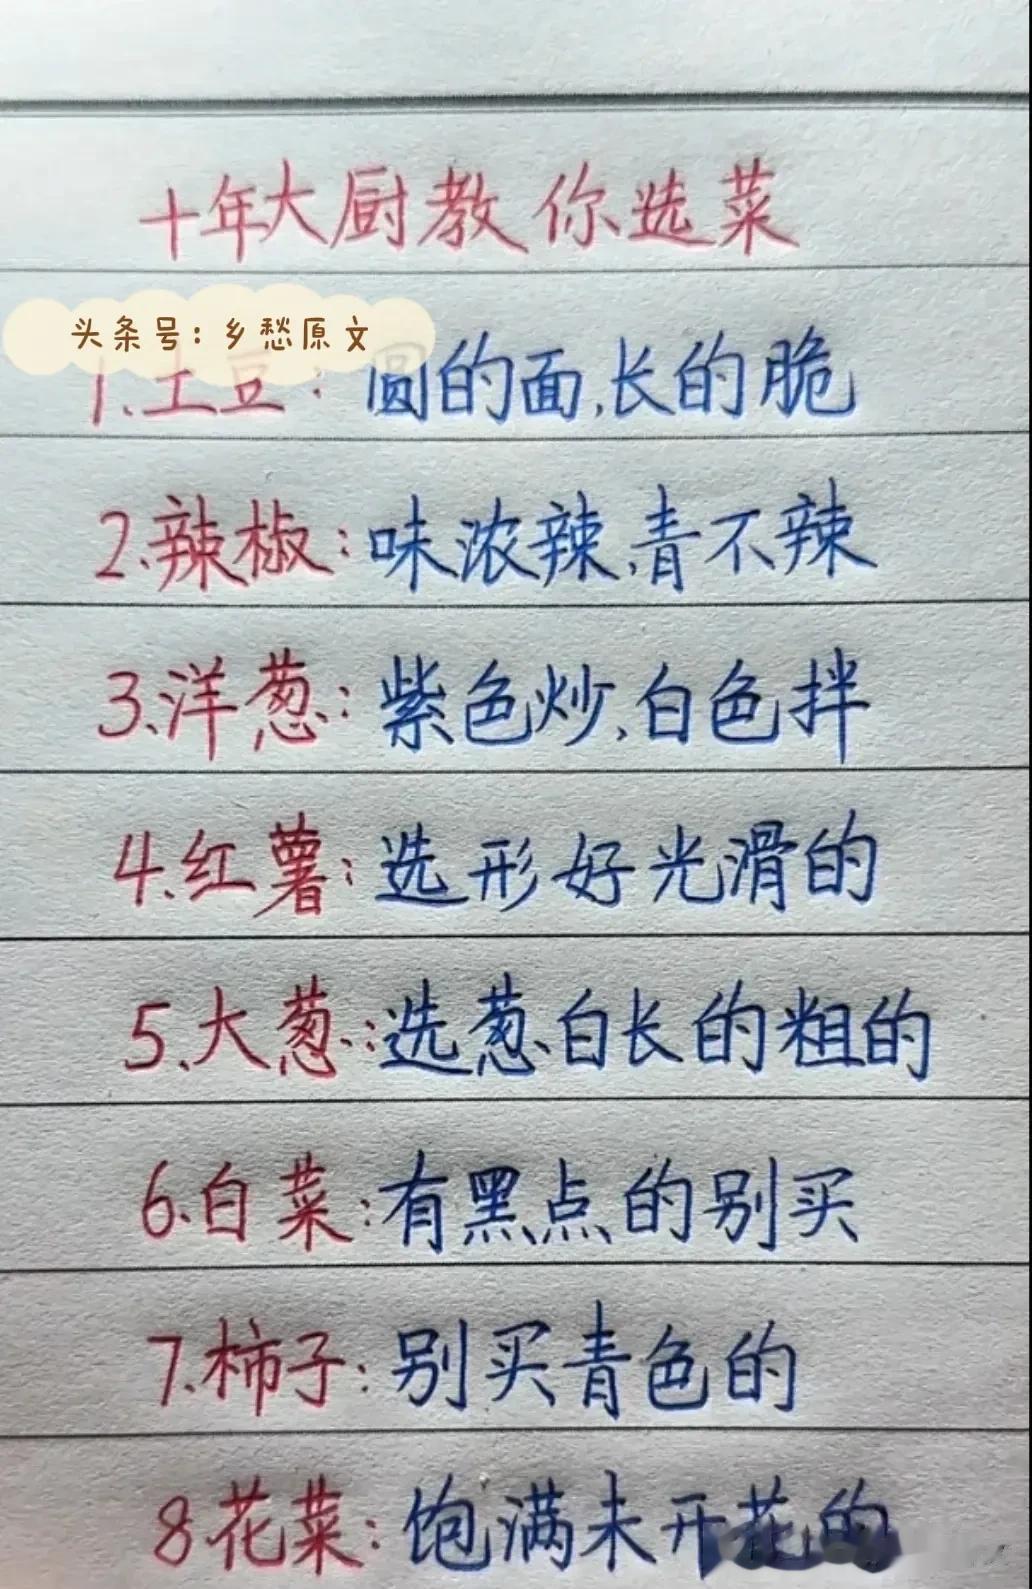 十年大厨教你选菜
头条号:乡愁原文
1.土豆:圆的面,长的脆
2.辣椒:味浓辣,青不辣
3.洋葱:紫色炒,白色拌
4.红薯:选形好光滑的
5.大葱:选葱白长的粗的
6.白菜:有黑点的别买
7.柿子:别买青色的
8花菜:饱满未开花的